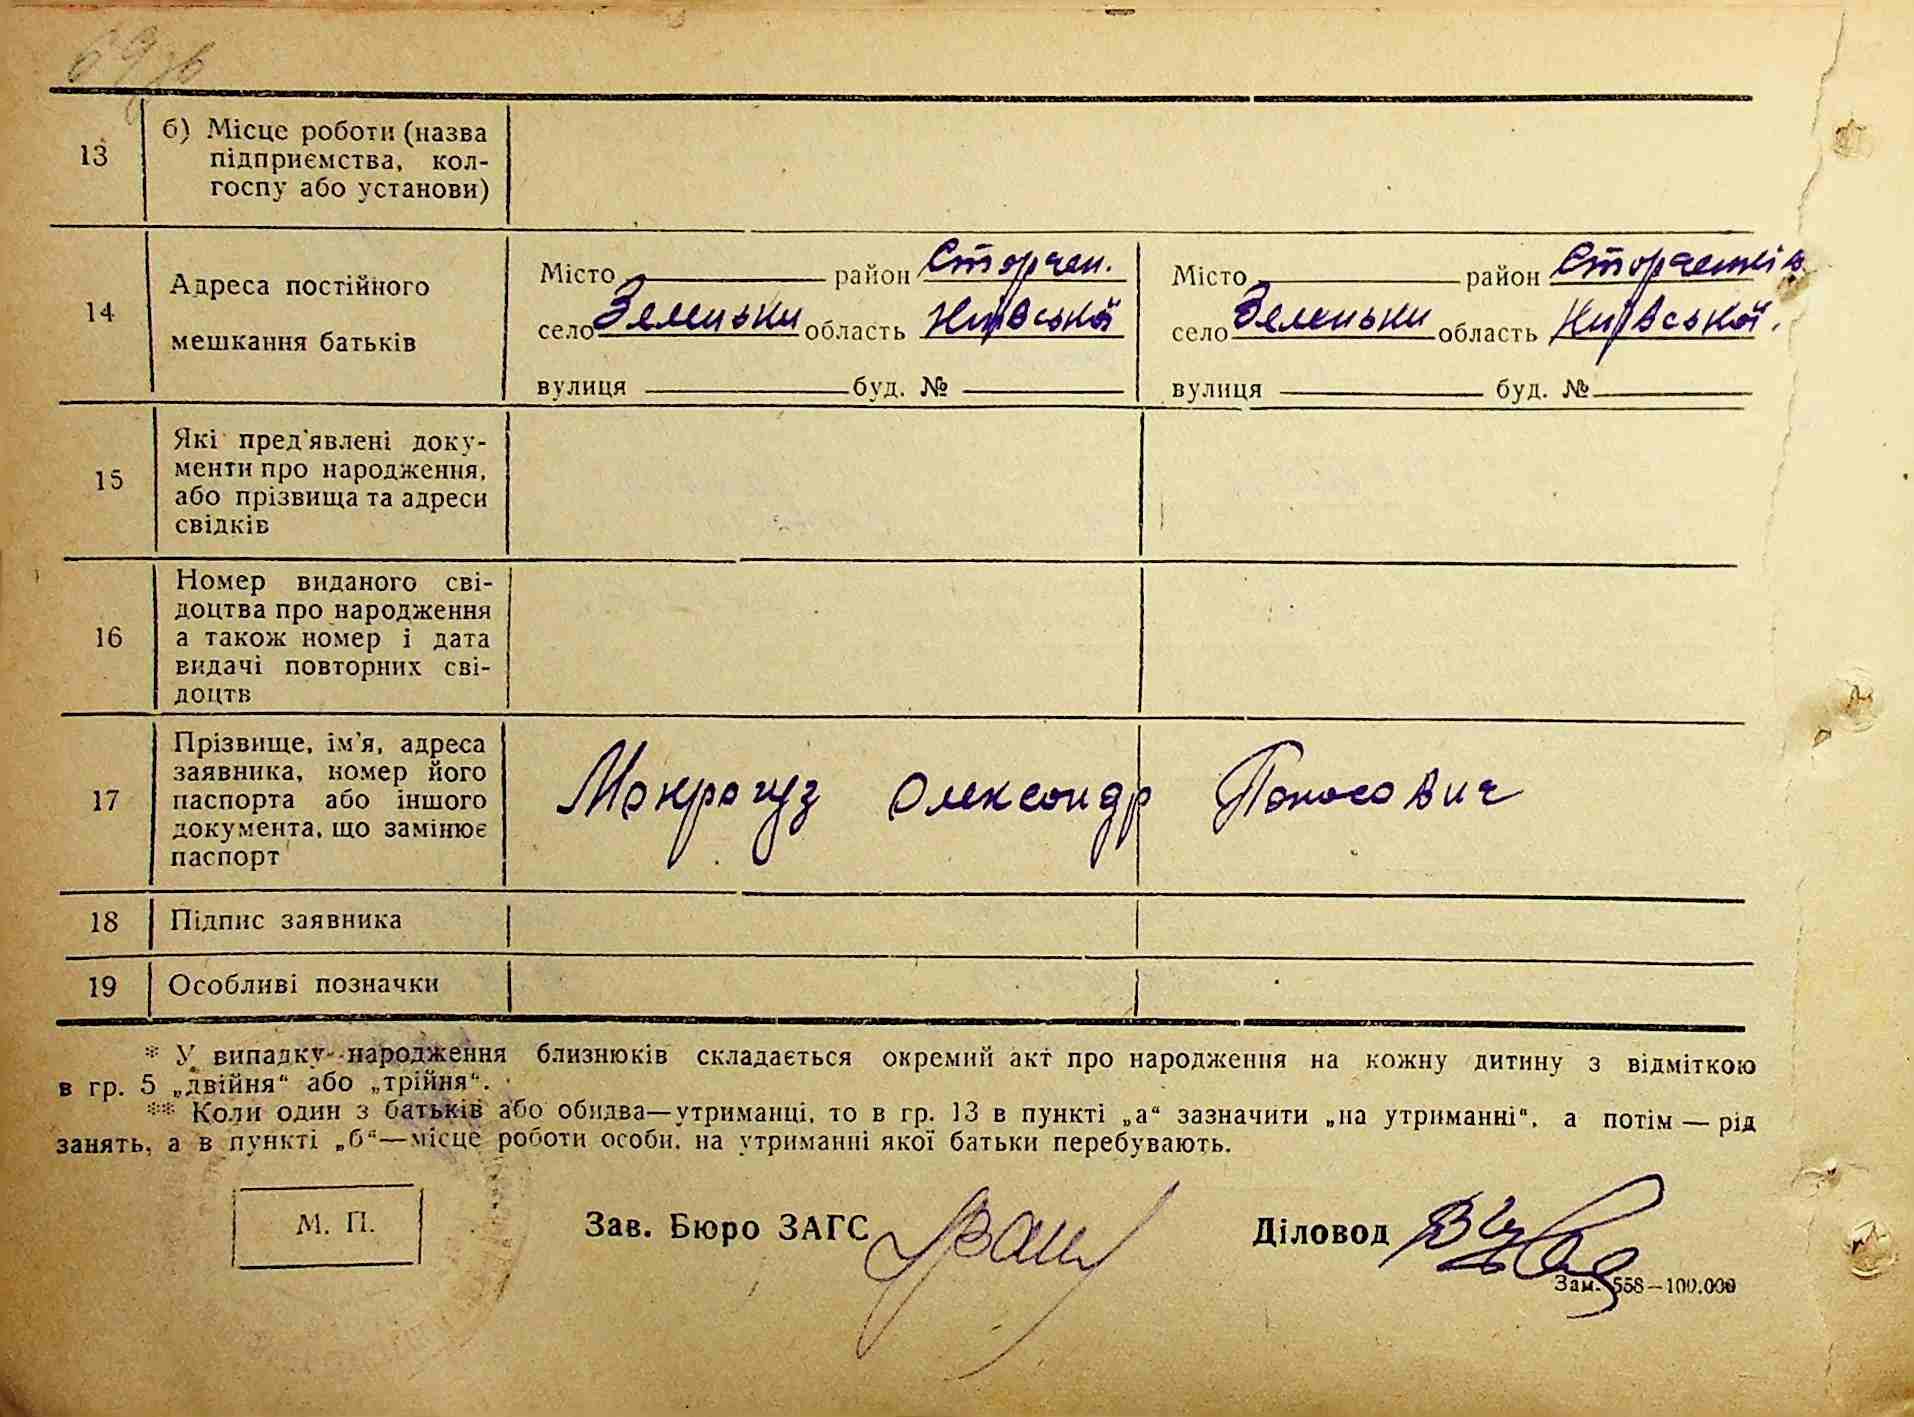 69зв
13 б) Місце роботи (назва
підприємства, кол-
госпу або установи)
14 Адреса постійного
мешкання батьків
Місто район Сторчен.
село Зеленьки область Київської
вулиця буд. №
Місто район
село Зеленьки область Київської.
вулиця буд. №
15 Які пред'явлені доку-
менти про народження,
або прізвища та адреси
свідків
16 Номер виданого сві-
доцтва про народження
а також номер і дата
видачі повторних сві-
доцтв
17 Прізвище, ім'я, адреса
заявника, номер його
паспорта або іншого
документа, що замінює
паспорт
Мокрогуз Олександр Понасович
18 Підпис заявника
19 Особливі позначки
* У випадку народження близнюків складається окремий акт про народження на кожну дитину з відміткою
в гр. 5 „двійня“ або „трійня“.
** Коли один з батьків або обидва—утриманці, то в гр. 13 в пункті „а“ зазначити „на утриманні“, а потім — рід
занять, а в пункті „б“—місце роботи особи, на утриманні якої батьки перебувають.
М. П.
Зав. Бюро ЗАГС
Діловод
Зам. 558—100.000